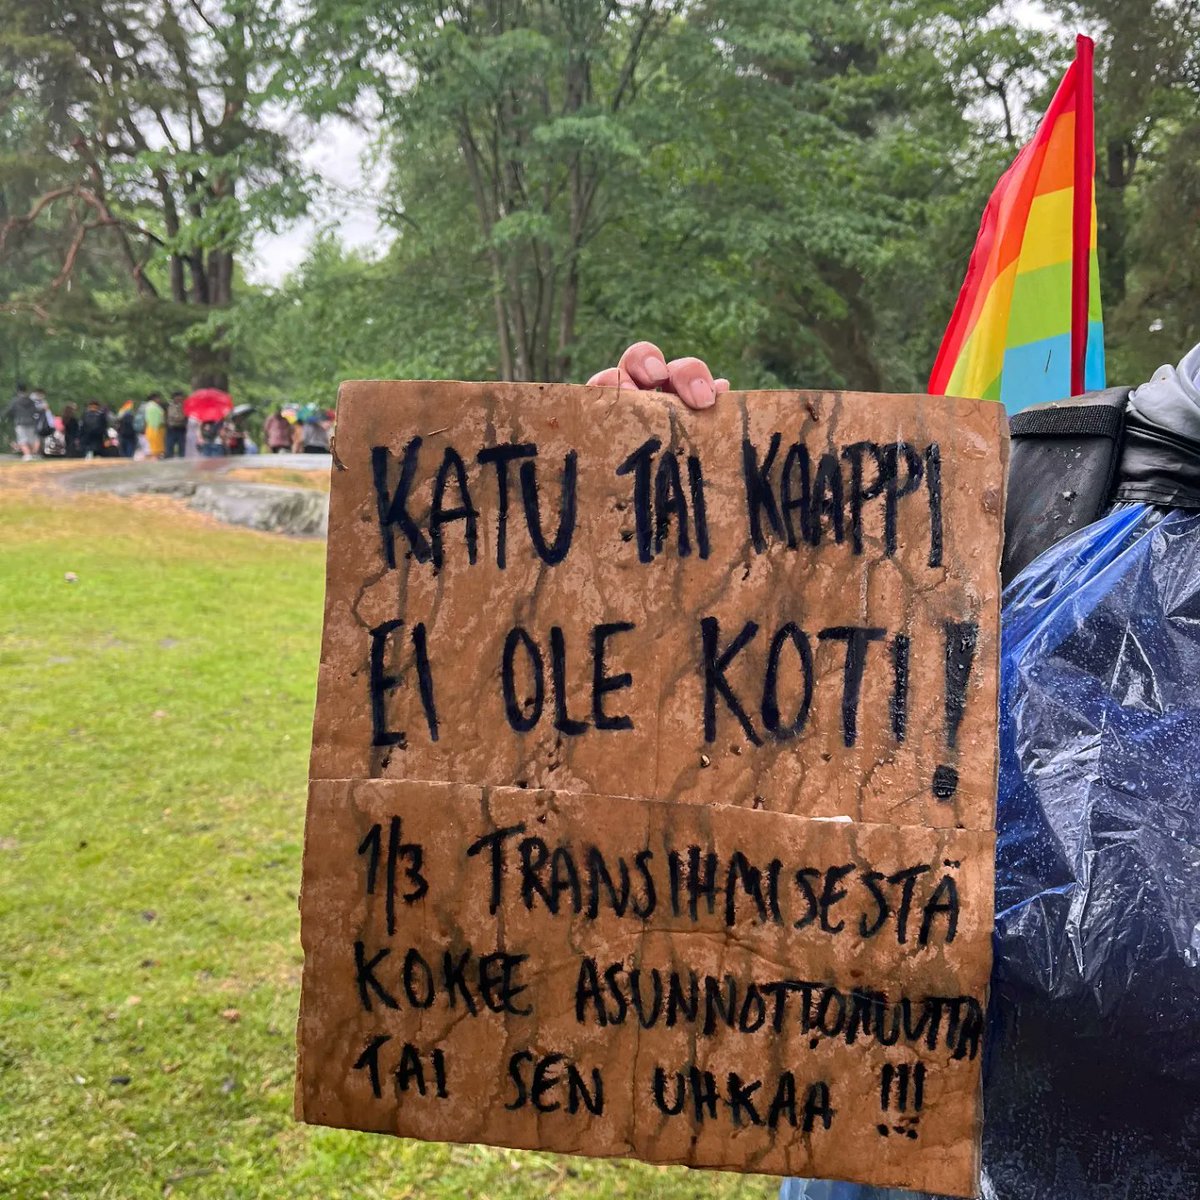 KATU TAI KAAPPI
EI OLE KOTI!
1/3 TRANSIHMISESTÄ
KOKEE ASUNNOTTOMUUTTA
TAI SEN UHKAA !!!